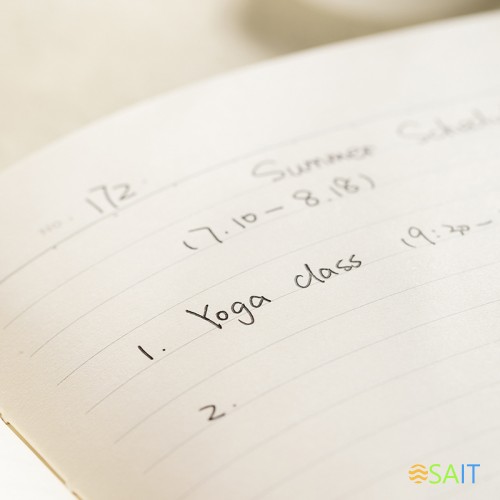 no. 172.
Summer
(7.10 - 8.18)
1. Yoga class (9:30 -
2.
SAIT